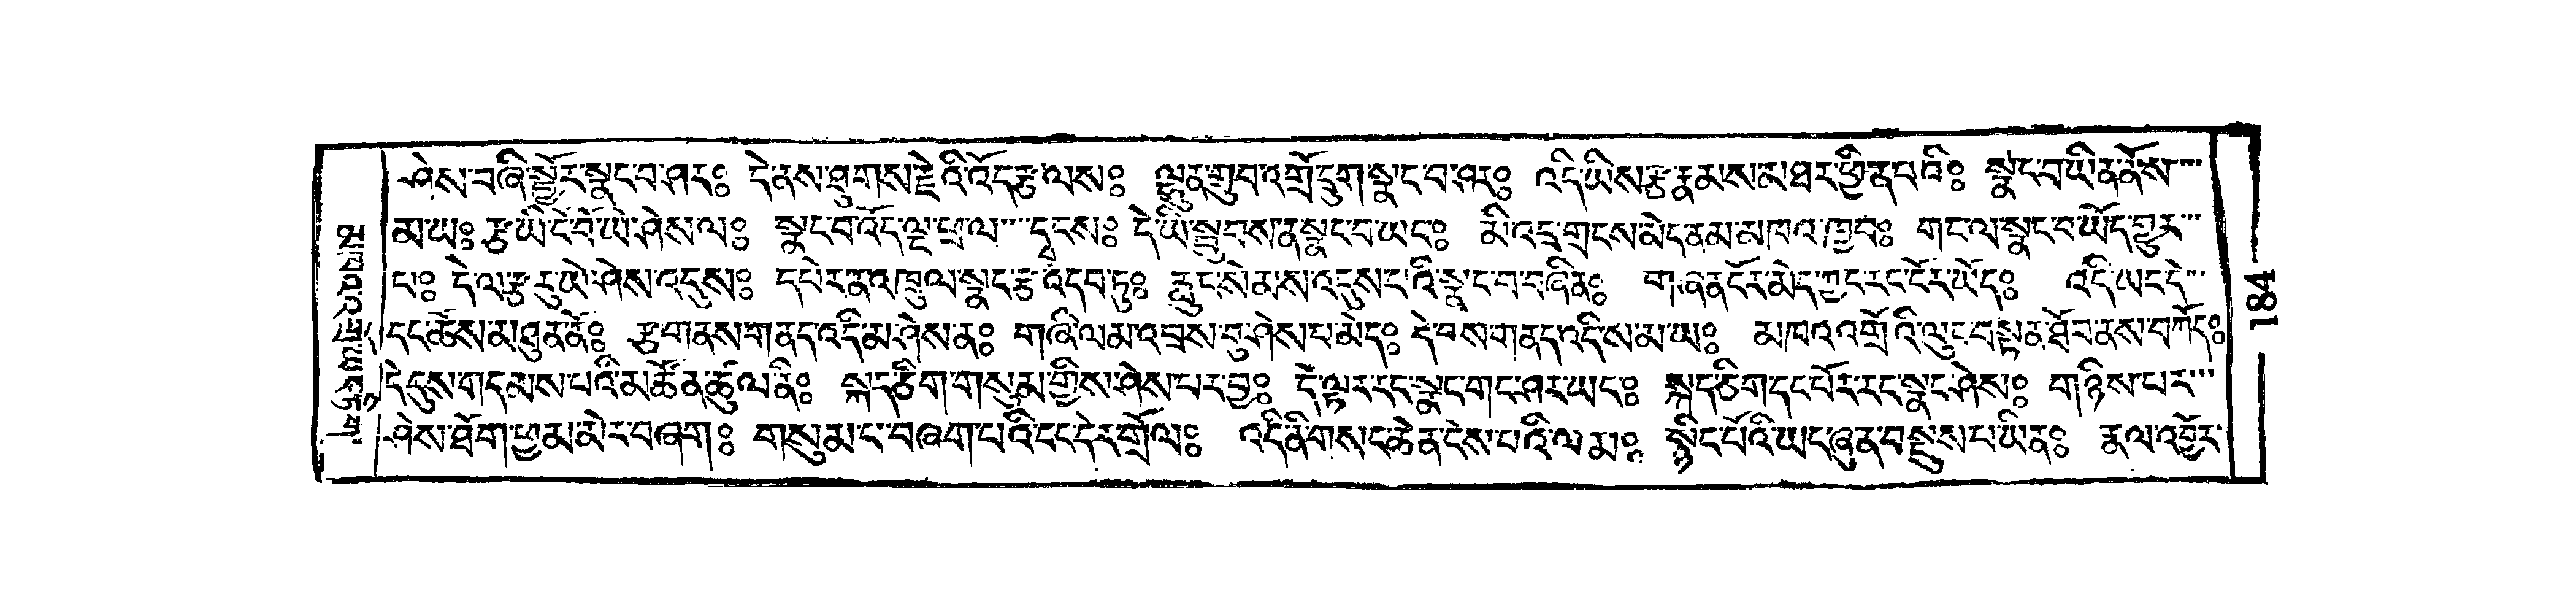 ཤེས་བཞི་སྦྱོར་སྣང་བ་ཤར༔ དེ་ནས་ཐུགས་རྗེའི་འོད་རྩ་ལས༔ ལྷུན་གྲུབ་འགྲོ་དྲུག་སྣང་བ་ཤར༔ འདི་ཡིས་རྩ་རྣམས་མ་ཐར་ཕྱིན་པའི༔ སྣང་བ་ཡིན་ནོས
མ་ཡ༔ རྩ་ཡི་ངོ་བོ་ཡེ་ཤེས་ལ༔ སྣང་བ་འོད་ལྔ་ཕྲ་ལ་དྭངས༔ དེ་ཡི་སྦུབས་ན་སྣང་བ་ཡང༔ མི་འདྲ་གྲངས་མེད་ནམ་མཁའ་ཁྱབ༔ གང་ལ་སྣང་བ་ཡོད་གྱུར
པ༔ དེ་ལ་རྩ་རུ་ཡེ་ཤེས་འདུས༔ དཔེར་ན་འཁྲུལ་སྣང་རྩ་འདབ་ཏུ༔ རླུང་སེམས་འདུས་པའི་སྣང་བ་བཞིན༔ གཞན་ངོར་མེད་ཀྱང་རང་ངོར་ཡོད༔ འདི་ཡང་དེ
དང་ཆོས་མཐུན་ནོ༔ རྩ་གནས་གནད་འདི་མ་ཤེས་ན༔ གཞི་ལམ་འབྲས་བུ་ཤེས་པ་མེད༔ ཛེ་བས་གནད་འདིས་མ་ཡ༔ མཁའ་འགྲོའི་ལུང་བསྟན་ཐོབ་ནས་བཀོད༔
དེ་དུས་གདམས་པའི་མཚོན་ཚུལ་ནི༔ སྐད་ཅིག་གསུམ་གྱིས་ཤེས་པར་བྱ༔ དེ་ལྟར་རང་སྣང་གང་ཤར་ཡང༔ སྐད་ཅིག་དང་པོར་རང་སྣང་ཤེས༔ གཉིས་པར
ཤེས་ཐོག་ཕྱམ་མེར་བཞག༔ གསུམ་པ་བཞག་པའི་ངང་དེར་གྲོལ༔ འདི་ནི་གསང་ཆེན་ངེས་པའི་ལམ༔ སྙིང་པོའི་ཡང་ཞུན་བསྡུས་པ་ཡིན༔ རྣལ་འབྱོར་